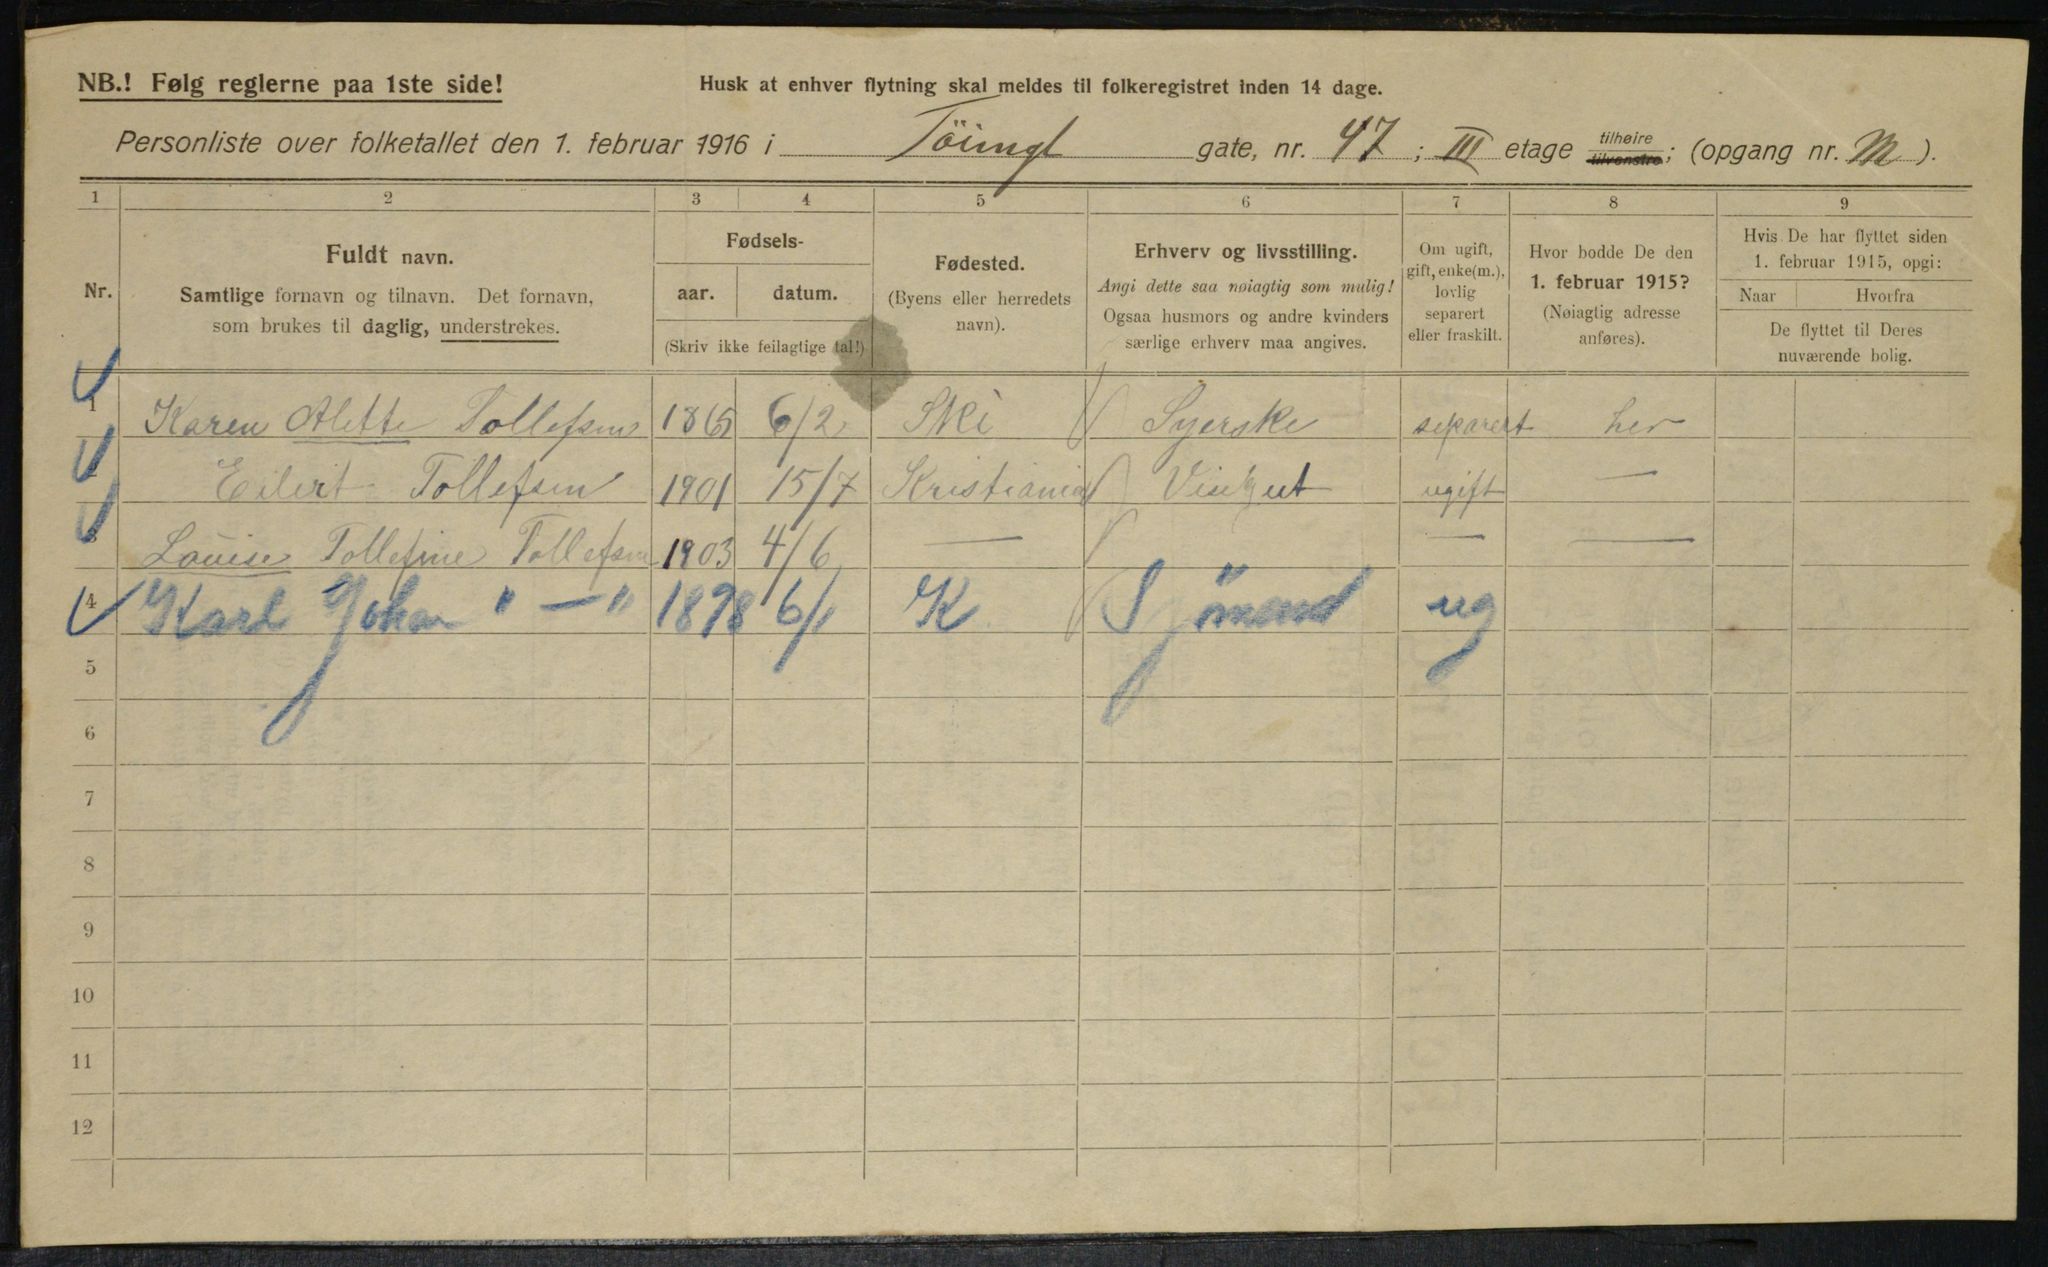 NB.! Følg reglerne paa 1ste side!
Husk at enhver flytning skal meldes til folkeregistret inden 14 dage.
Personliste over folketallet den 1. februar 1916 i Töiengt gate, nr. 47; III etage tilhøire tilvenstre; (opgang nr. M).
1 2 3 4 5 6 7 8 9
Nr.
Fuldt navn.
Samtlige fornavn og tilnavn. Det fornavn,
som brukes til daglig, understrekes.
Fødsels-
aar. datum.
(Skriv ikke feilagtige tal!)
Fødested.
(Byens eller herredets
navn).
Erhverv og livsstilling.
Angi dette saa nøiagtig som mulig!
Ogsaa husmors og andre kvinders
særlige erhverv maa angives.
Om ugift,
gift, enke(m.),
lovlig
separert
eller fraskilt.
Hvor bodde De den
1. februar 1915?
(Nøiagtig adresse
anføres).
Hvis De har flyttet siden
1. februar 1915, opgi:
Naar Hvorfra
De flyttet til Deres
nuværende bolig.
1 Karen Alette Tollefsen 1865 6/2 Ski Syerske separert her
2 Eilert Tollefsen 1901 15/7 Kristiania Visergut ugift —
3 Louise Tollefine Tollefsen 1903 4/6 — — —
4 Karl Johan " — " 1898 6/1 K Sjömand ug
5
6
7
8
9
10
11
12